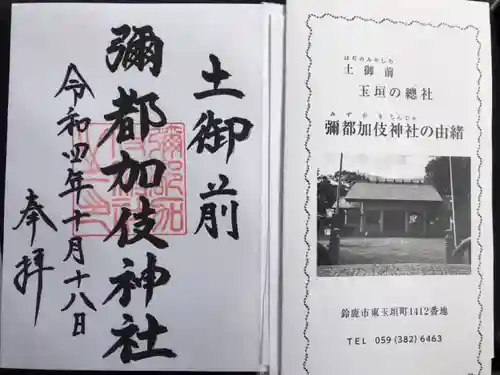 土御前
彌都加伎神社
令和四年十月十八日
奉拝
土御前
玉垣の總社
みずがきじんじゃ
彌都加伎神社の由緒
鈴鹿市東玉垣町1412番地
TEL 059(382)6463